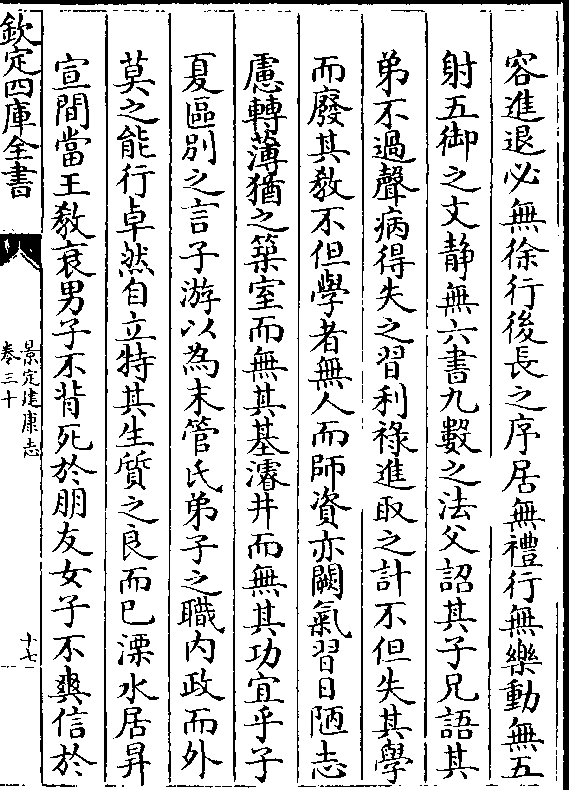 容進退必無徐行後長之序居無禮行無樂動無五
射五御之文靜無六書九數之法父詔其子兄語其
弟不過聲病得失之習利祿進取之計不但失其學
而廢其敎不但學者無人而師資亦闕氣習日陋志
慮轉薄猶之築室而無其基濬井而無其功宜乎子
夏區別之言子游以為末管氏弟子之職內政而外
莫之能行卓然自立特其生質之良而已溧水居昇
宣間當王敎衰男子不背死於朋友女子不爽信於
欽定四庫全書
景定建康志
卷三十
十七